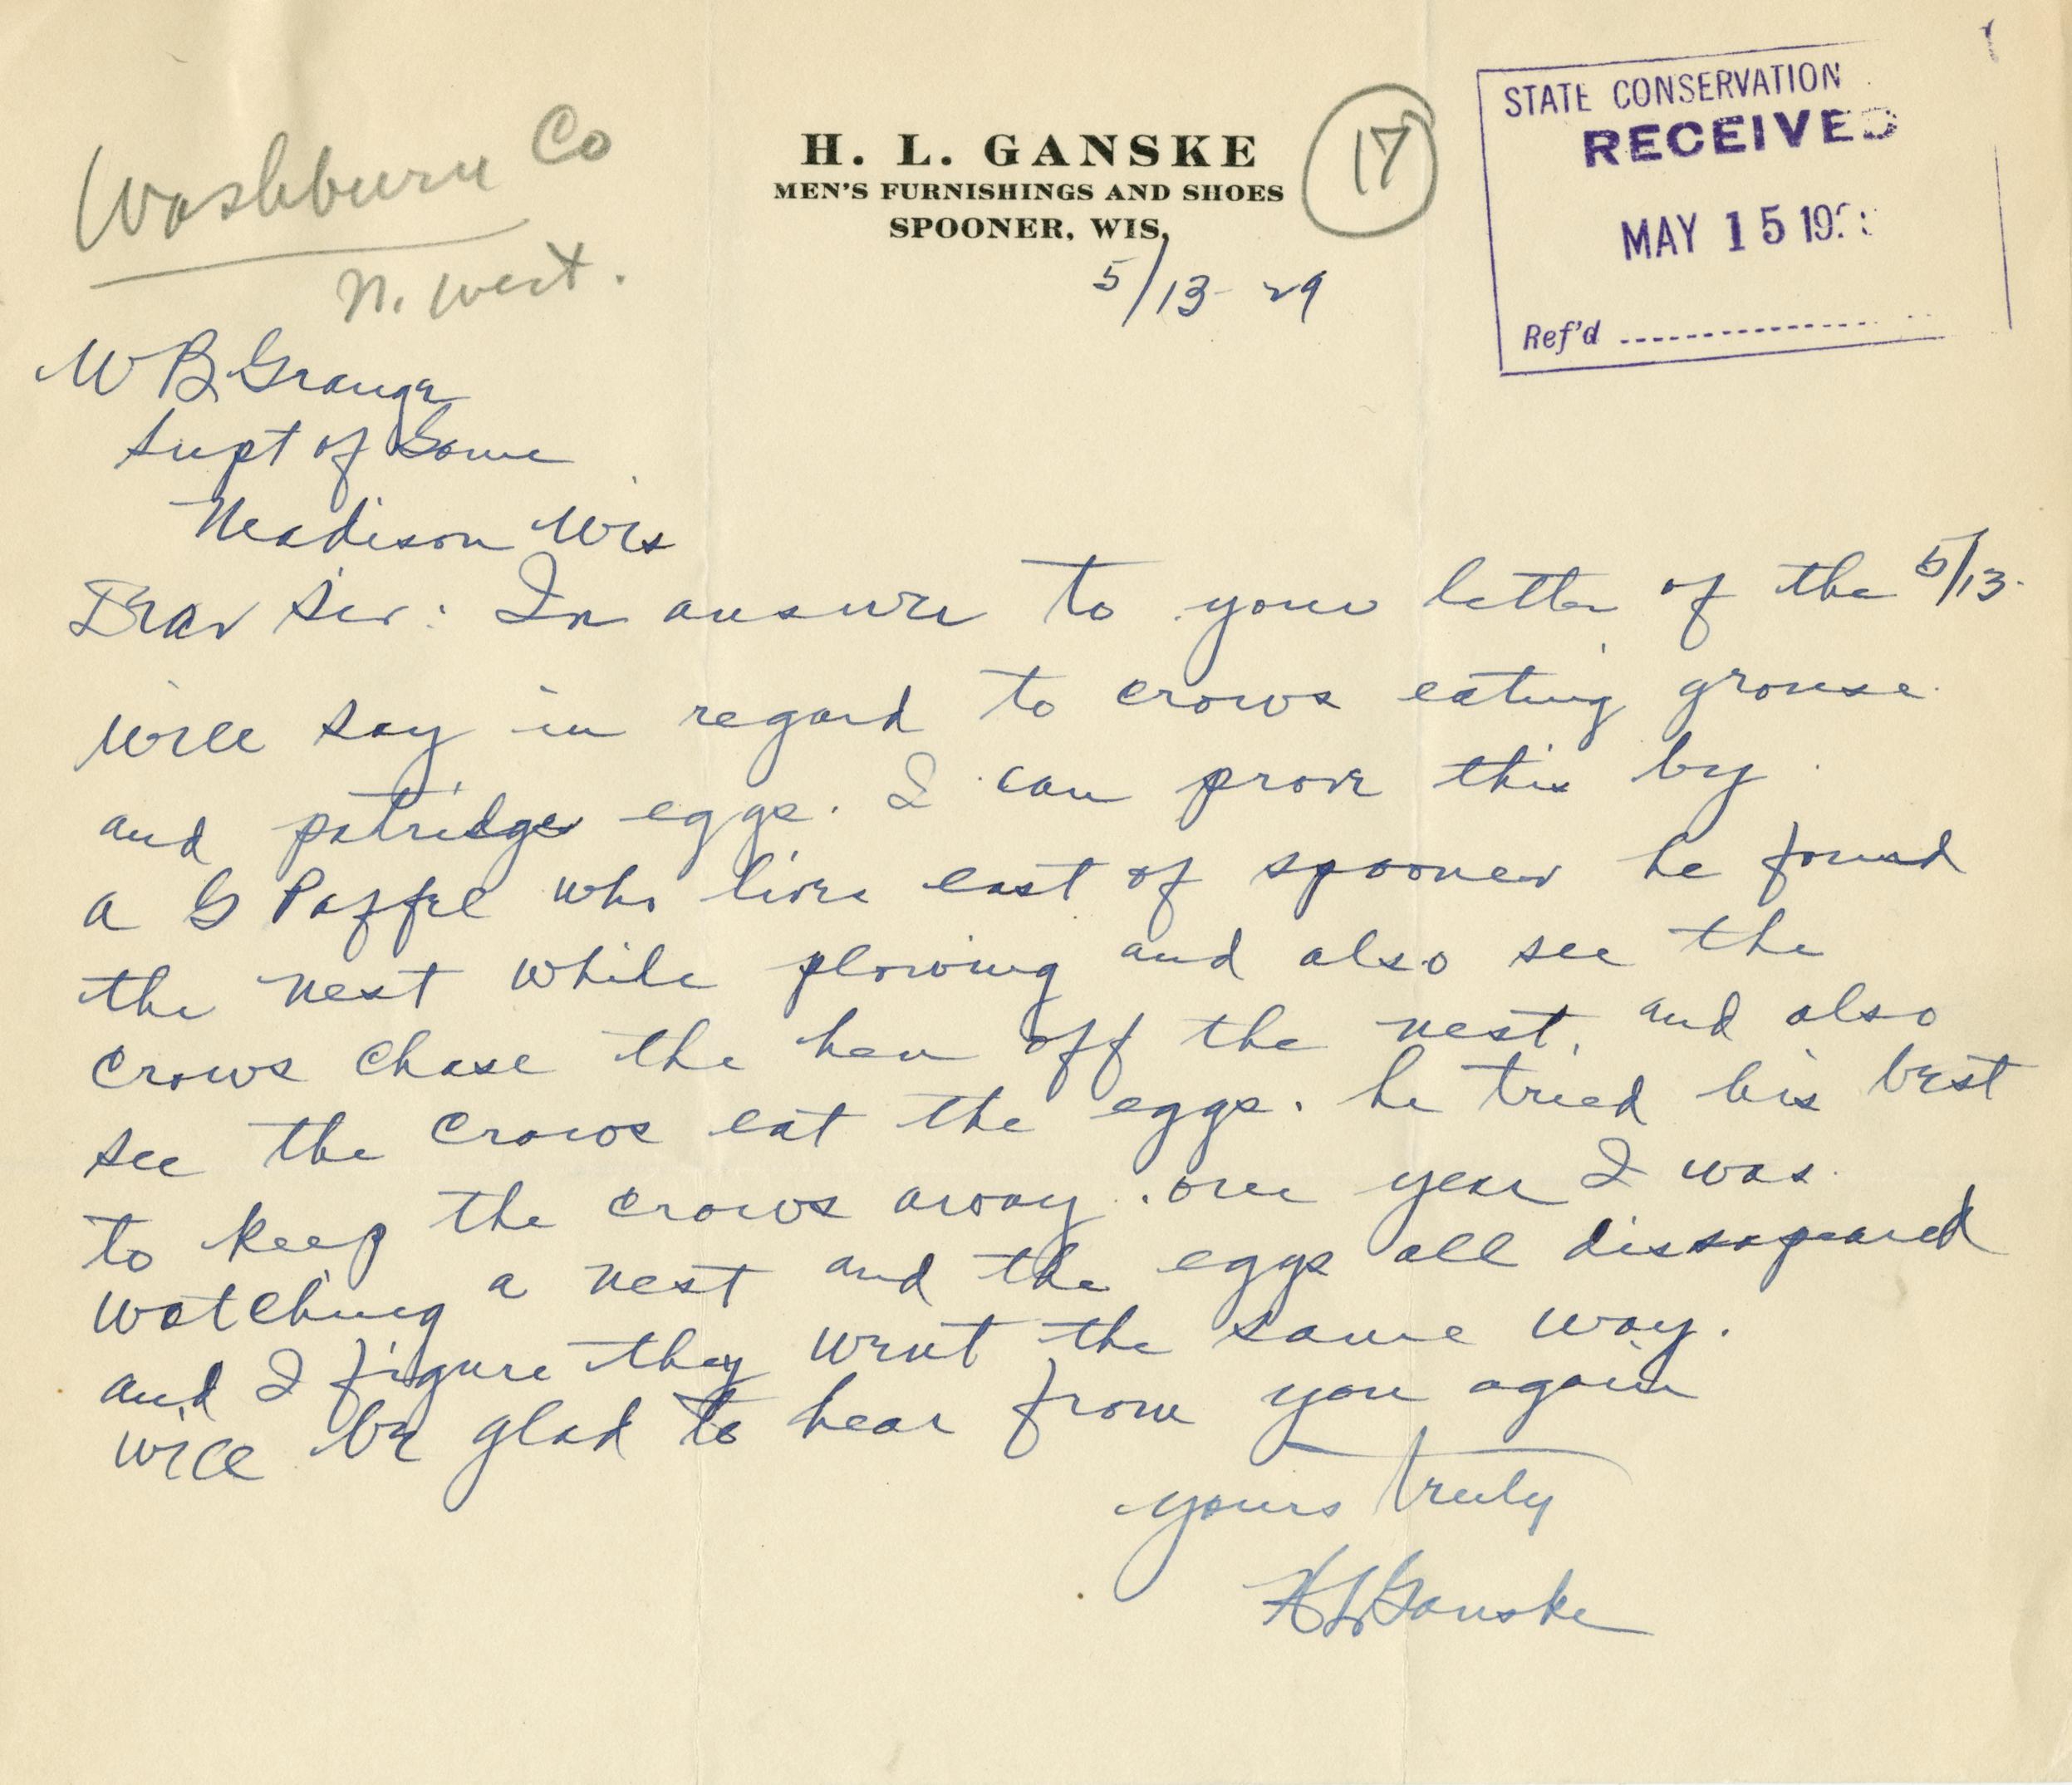 Washburn Co
N. West.
H. L. GANSKE
MEN'S FURNISHINGS AND SHOES
SPOONER, WIS.
17
STATE CONSERVATION
RECEIVED
MAY 15 19
Ref'd
5/13- 29
W B Grange
Supt of Game
Madison Wis
Dear Sir: In answer to your letter of the 5/13-
will say in regard to crows eating grouse
and patridge eggs. I can prove this by
a G Paffel who lives east of spooner he found
the nest while plowing and also see the
crows chase the hen off the nest, and also
see the crows eat the eggs. he tried his best
to keep the crows away. one year I was
watching a nest and the eggs all dissapeared
and I figure they went the same way.
will be glad to hear from you again
yours truly
H L Ganske